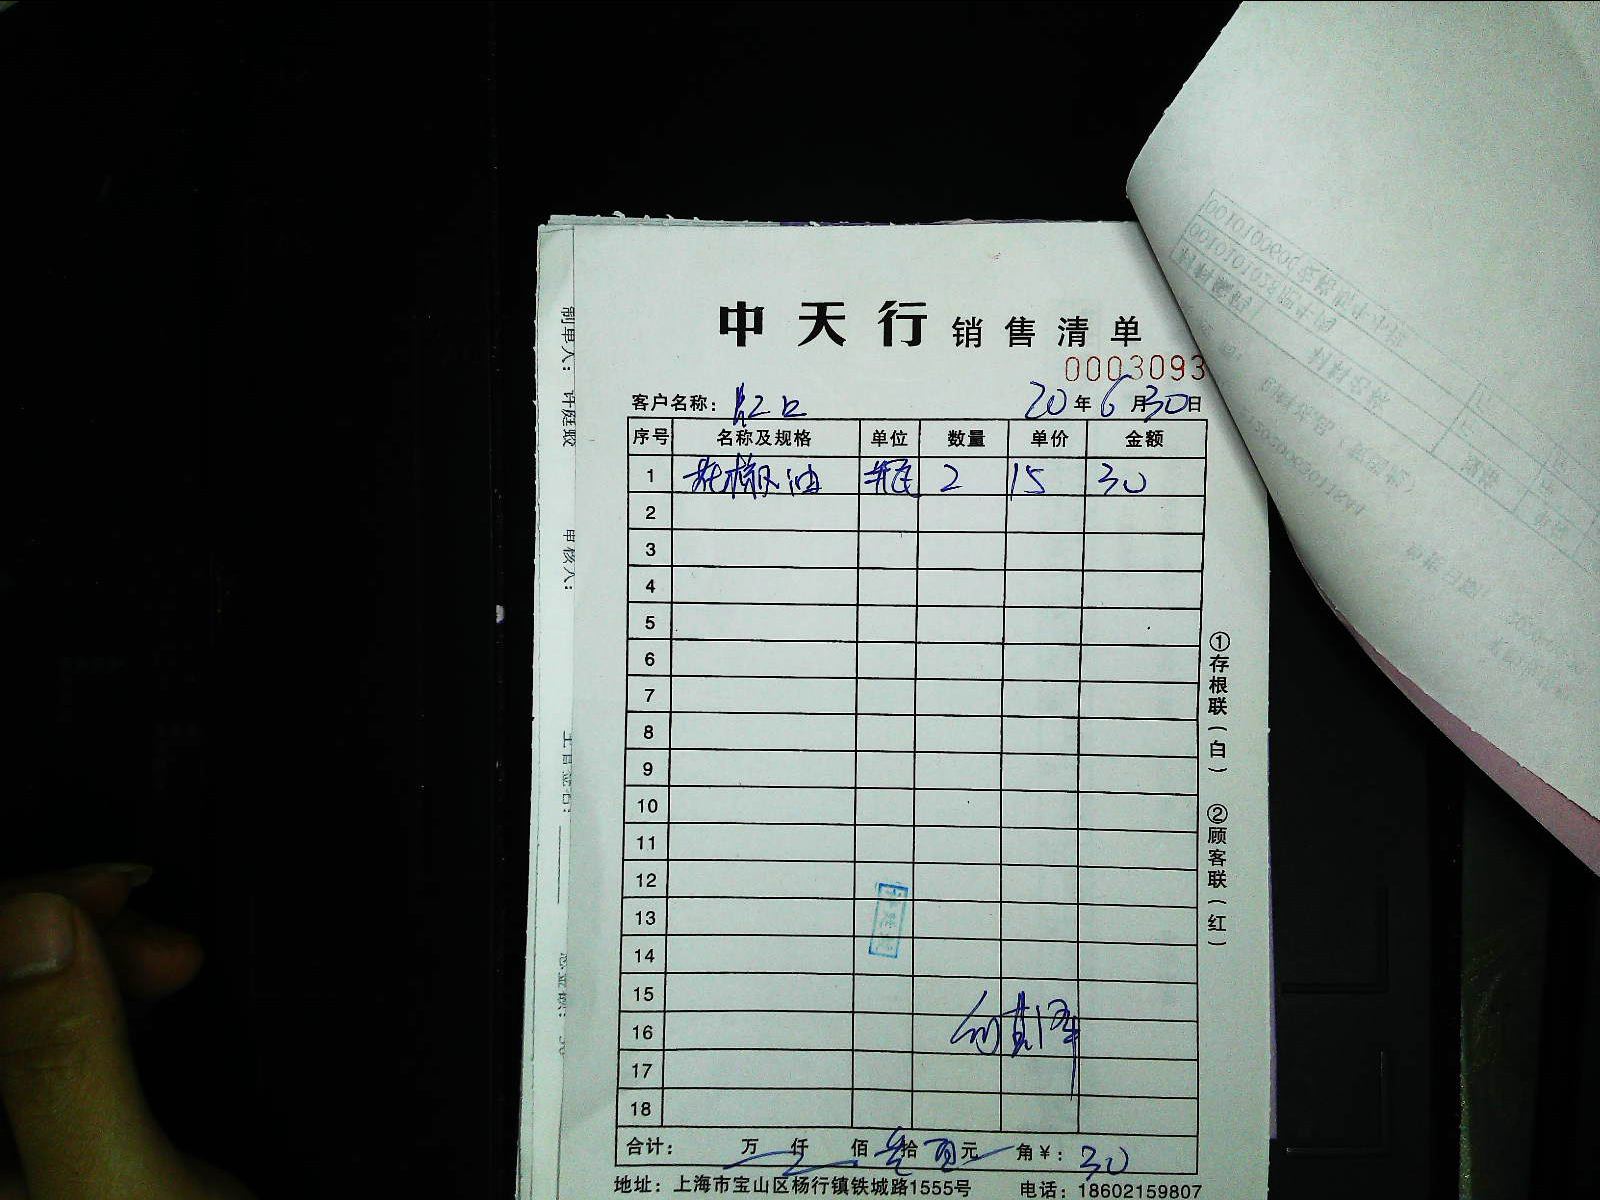 中天行 销售清单
0003093
客户名称： 虹口 20年6月30日
序号 名称及规格 单位 数量 单价 金额
1 花椒油 瓶 2 15 30
2
3
4
5
6
7
8
9
10
11
12
13
14
15
16
17
18
合计： 万 仟 佰 叁拾 元 角￥：30
地址：上海市宝山区杨行镇铁城路1555号 电话：18602159807
①存根联（白） ②顾客联（红）
制单人：
审核人：